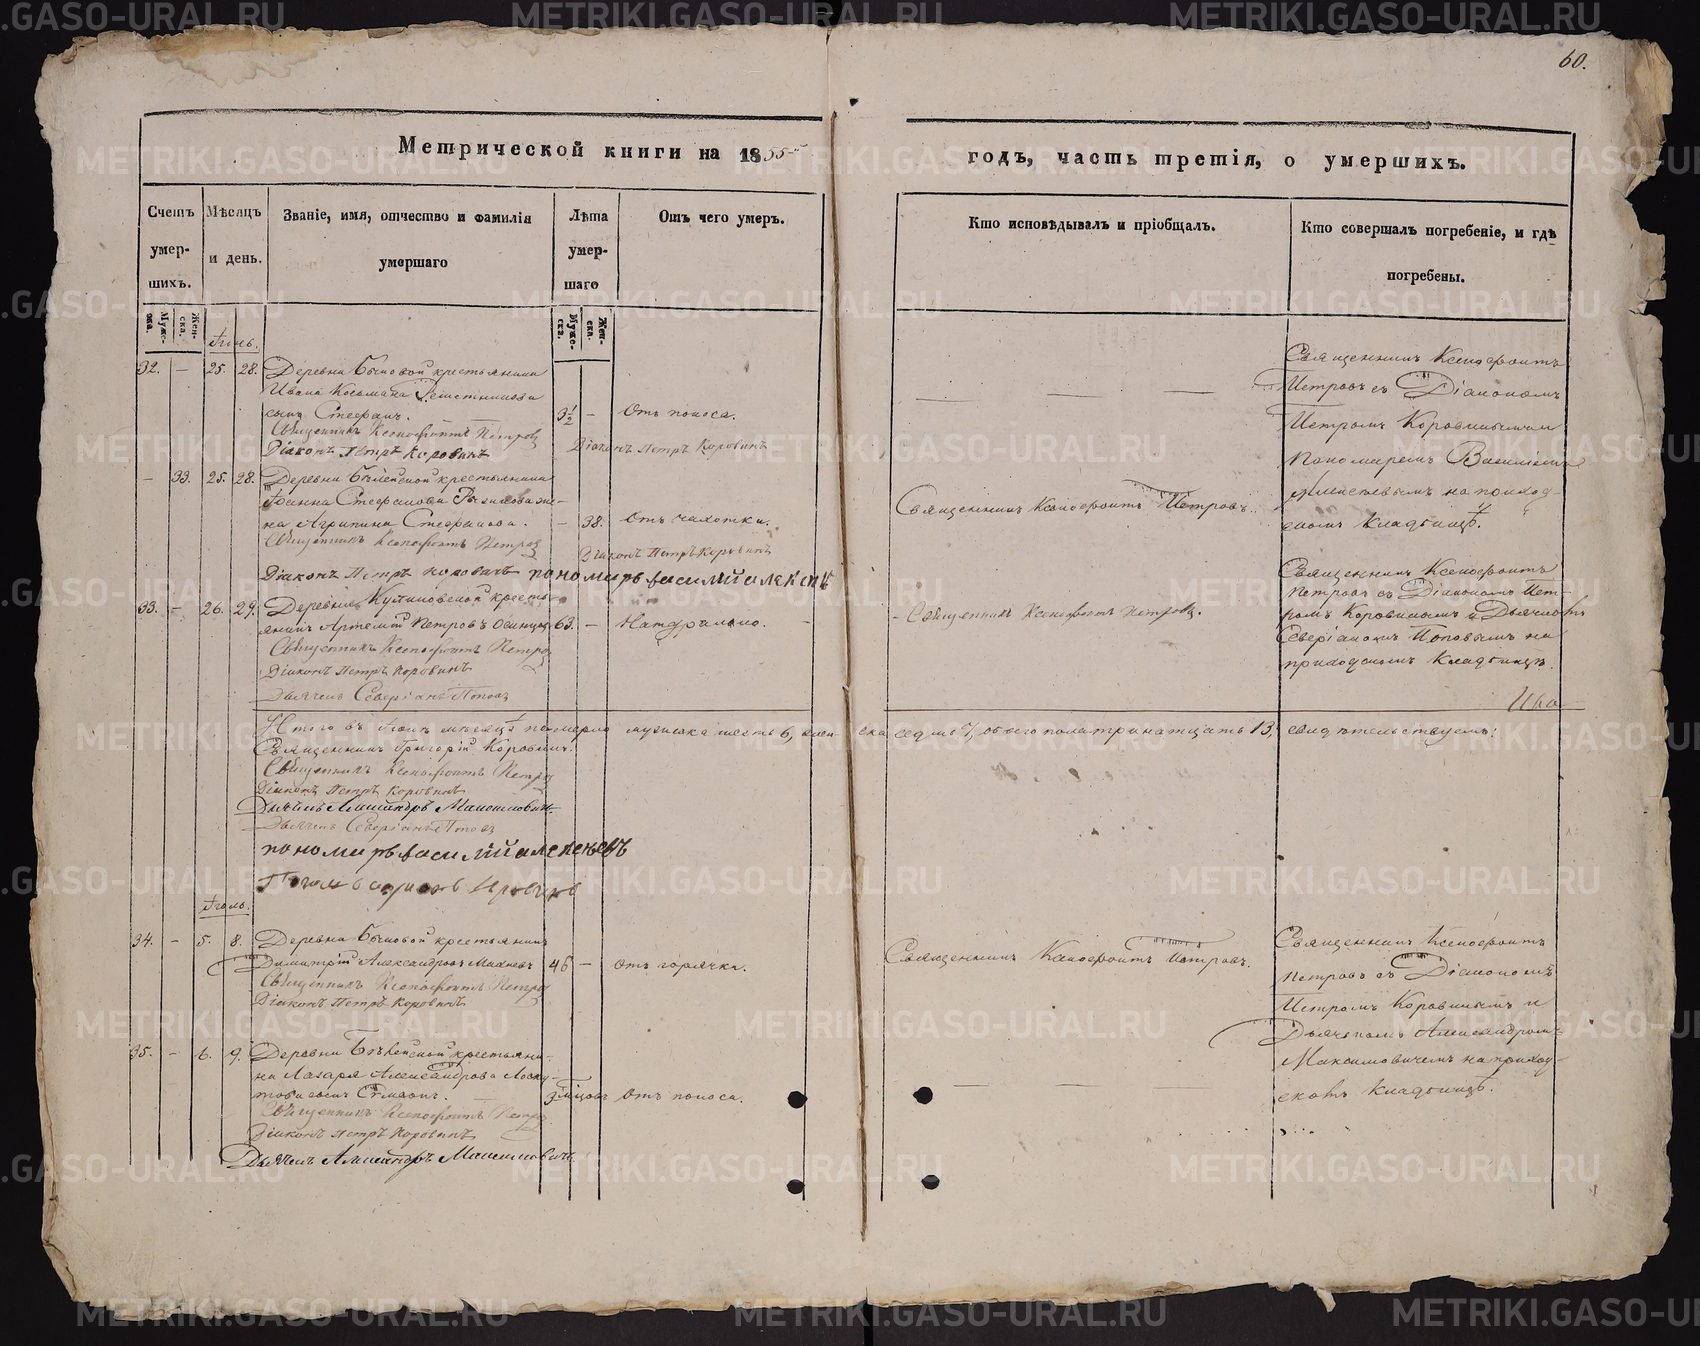 60.
Метрической книги на 1855 годъ, часть третія, о умершихъ.
Счетъ умер- шихъ.
Мѣсяцъ и день.
Званіе, имя, отчество и фамилія умершаго
Лѣта умер- шаго
Отъ чего умеръ.
Кто исповѣдывалъ и пріобщалъ.
Кто совершалъ погребеніе, и гдѣ погребены.
Муже- ска.
Жен- ска.
Муже- ска.
Жен- ска.
Іюнь.
32. — 25. 28. Деревни Быковой крестьянина
Ивана Козьмина
сынъ Стефанъ. 3 1/2 — Отъ поноса.
Священникъ Ксенофонтъ Петровъ
Діаконъ Петръ Коровинъ
Діаконъ Петръ Коровинъ
Священникъ Ксенофонтъ
Петровъ съ Діакономъ
Петромъ Коровинымъ и
Пономаремъ Василіемъ
Алексѣевымъ на приход-
скомъ кладбищѣ.
— 33. 25. 28. Деревни крестьянина
Іоанна Стефанова же-
на Агрипина Стефанова. — 38. Отъ чахотки.
Священникъ Ксенофонтъ Петровъ.
Священникъ Ксенофонтъ Петровъ
Діаконъ Петръ Коровинъ
Діаконъ Петръ Коровинъ пономарь василій алексѣе
33. — 26. 29. Деревни кресть-
янинъ Артемій Петровъ Осинцевъ 63. — Натурально.
Священникъ Ксенофонтъ Петровъ.
Священникъ Ксенофонтъ Петровъ
Діаконъ Петръ Коровинъ
Дьячекъ Северіанъ Поповъ
Священникъ Ксенофонтъ
Петровъ съ Діакономъ Пет-
ромъ Коровинымъ и Дьячкомъ
Северіаномъ Поповымъ на
приходскомъ кладбищѣ.
Ито
Итого въ Іюнѣ мѣсяцѣ померло мужеска шесть 6, жен- ска седмь 7, обоего пола тринатцать 13, свидѣтельствуемъ:
Священникъ Григорій Коровинъ.
Священникъ Ксенофонтъ Петровъ
Діаконъ Петръ Коровинъ
Дьячекъ Александръ Максимовичъ
Дьячекъ Северіанъ Поповъ
пономарь василій алексѣевъ
Іюль.
34. — 5. 8. Деревни Быковой крестьянинъ
Димитрій Александровъ Махневъ 46 — отъ горячки.
Священникъ Ксенофонтъ Петровъ.
Священникъ Ксенофонтъ Петровъ
Діаконъ Петръ Коровинъ
Священникъ Ксенофонтъ
Петровъ съ Діакономъ
Петромъ Коровинымъ и
Дьячкомъ Александромъ
Максимовичемъ на приход-
скомъ кладбищѣ.
35. — 6. 9. Деревни крестьяни-
на Лазаря Александрова Лоску-
това сынъ Симеонъ. Отъ поноса.
Священникъ Ксенофонтъ Петровъ
Діаконъ Петръ Коровинъ
Дьячекъ Александръ Максимовичъ